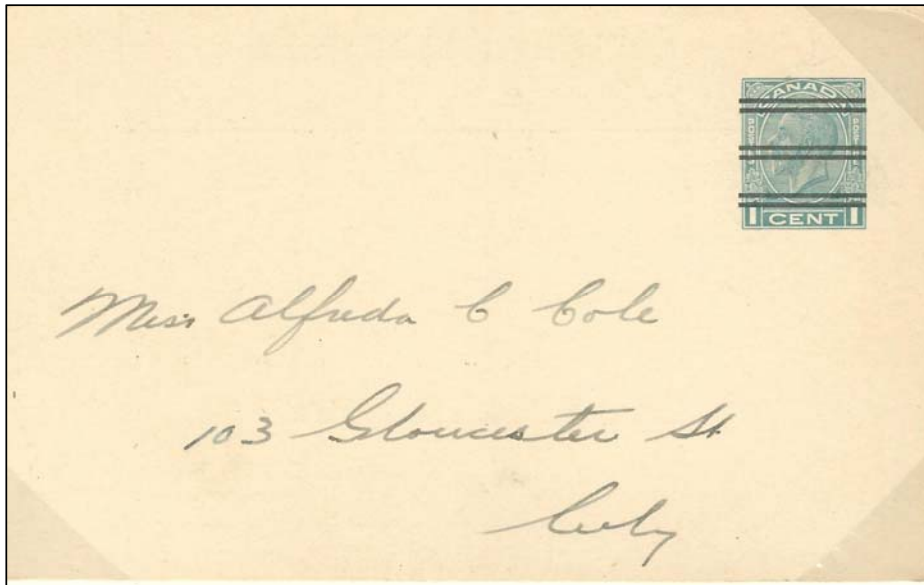 CANADA
1 CENT 1
Miss Alfreda C Cole
103 Gloucester St
City